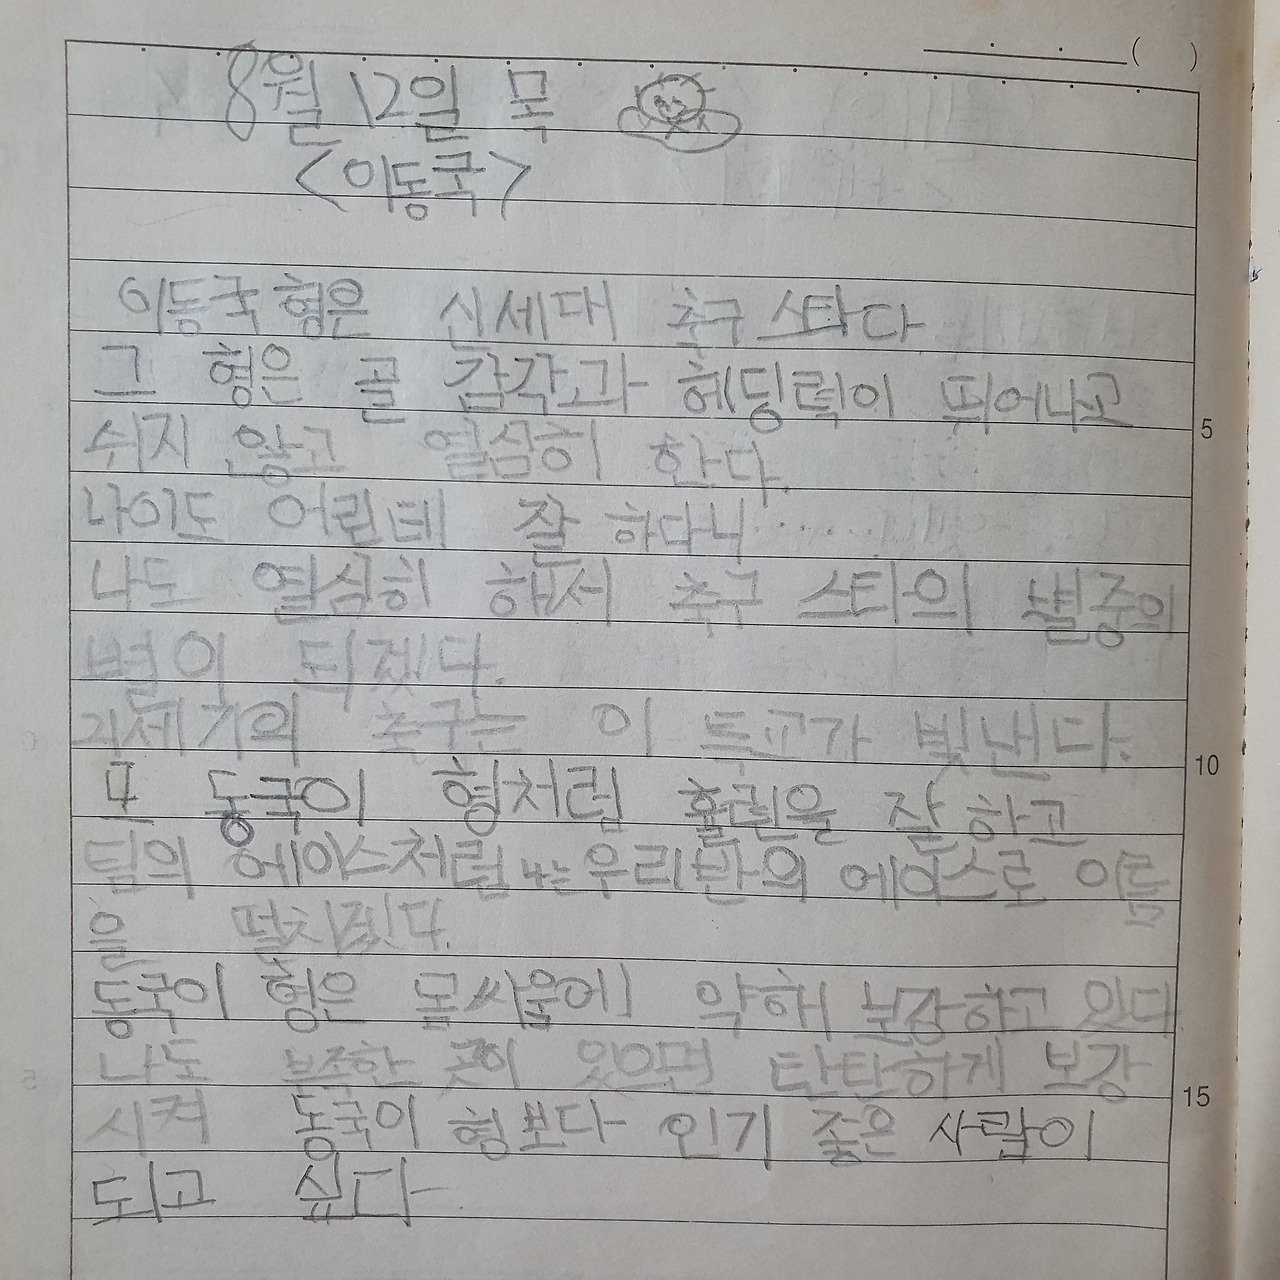 8월 12일 목
<이동국>
이동국 형은 신세대 축구 스타다
그 형은 골 감각과 헤딩력이 뛰어나고
쉬지 않고 열심히 한다.
나이도 어린데 잘 하다니······
나도 열심히 해서 축구 스타의 별중의
별이 되겠다.
21세기의 축구는 이 트고가 빛낸다.
또 동국이 형처럼 훌륜을 잘 하고
팀의 에이스처럼 나는 우리반의 에이스로 이름
을 떨치겠다.
동국이 형은 몸싸움에 약해 보강하고 있다
나도 부족한 곳이 있으면 탄탄하게 보강
시켜 동국이 형보다 인기 좋은 사람이
되고 싶다
5
10
15